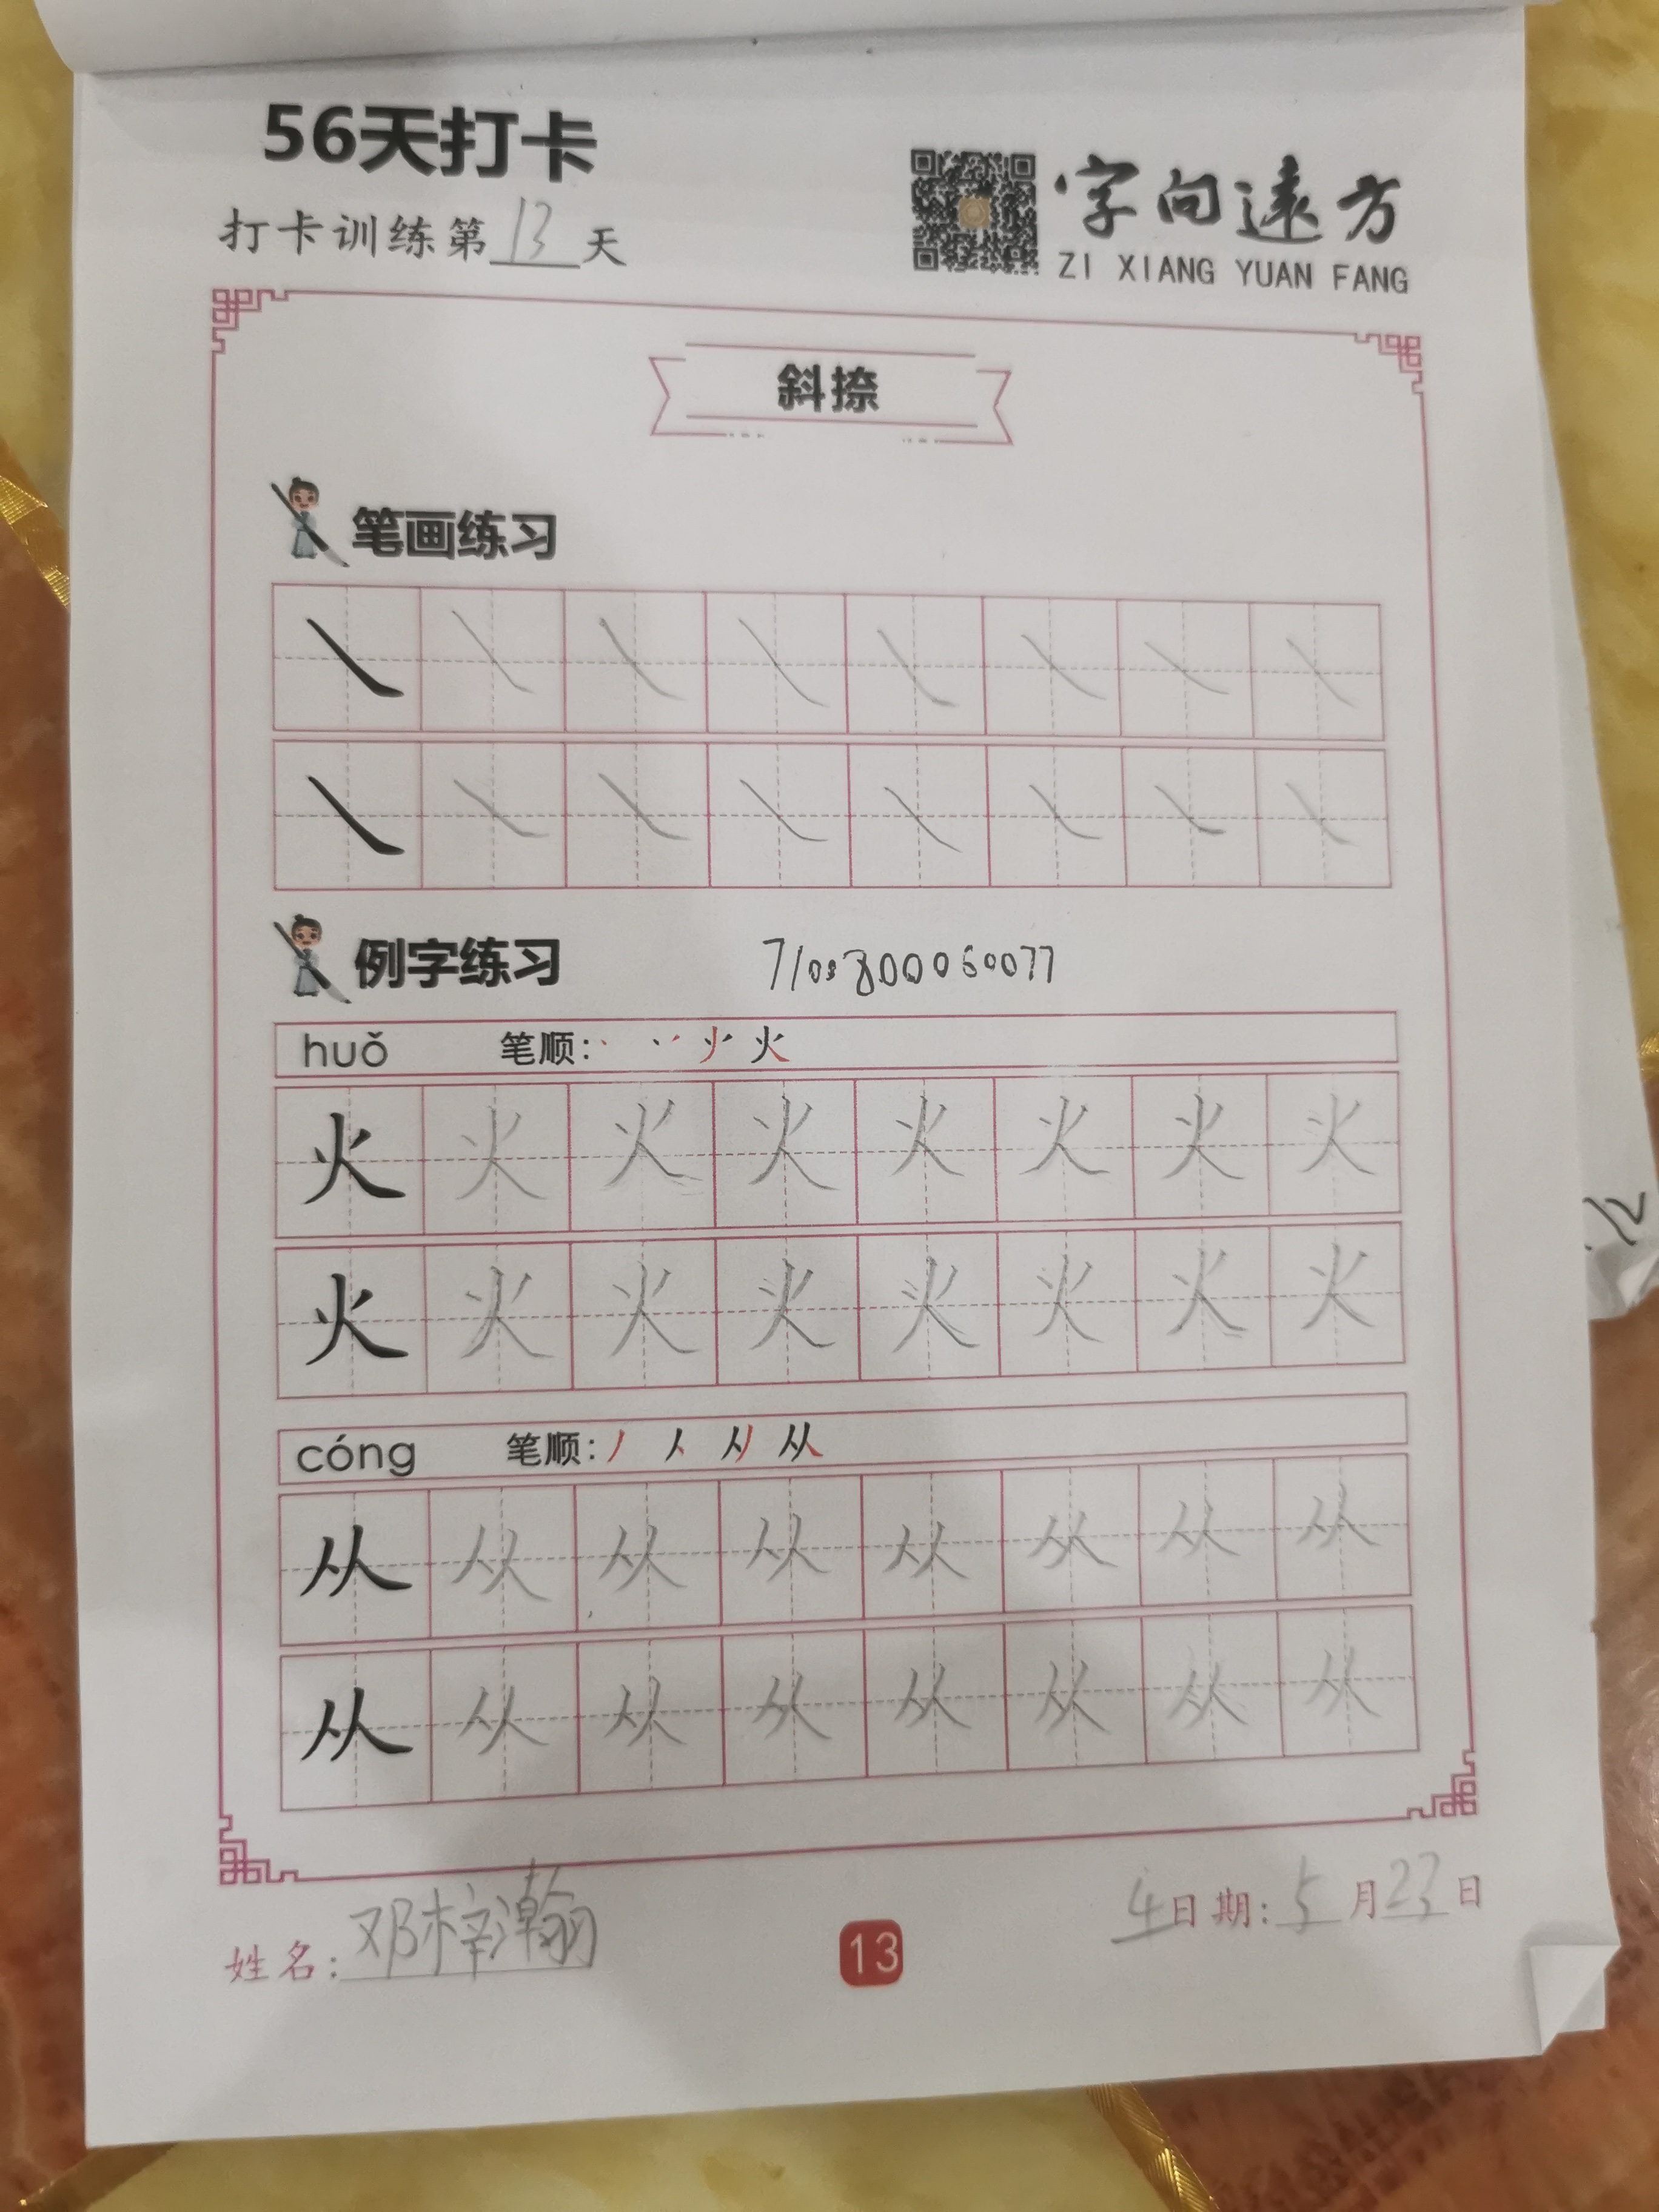 56天打卡
打卡训练第13天
字向遠方
ZI XIANG YUAN FANG
斜捺
笔画练习
例字练习
huǒ 笔顺: 火
火 火 火 火 火 火 火 火
火 火 火 火 火 火 火 火
cóng 笔顺: 丿 人 从
从 从 从 从 从 从 从 从
从 从 从 从 从 从 从 从
姓名: 邓梓瀚
13
日期: 5月23日